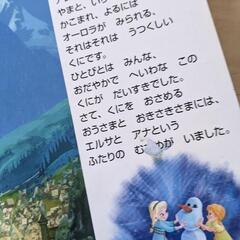 やまと、
かこまれ、よるには
オーロラが みられる、
それはそれは うつくしい
くにです。
ひとびとは みんな、
おだやかで へいわな この
くにが だいすきでした。
さて、くにを おさめる
おうさまと おきさきさまには、
エルサと アナという
ふたりの むすめが いました。